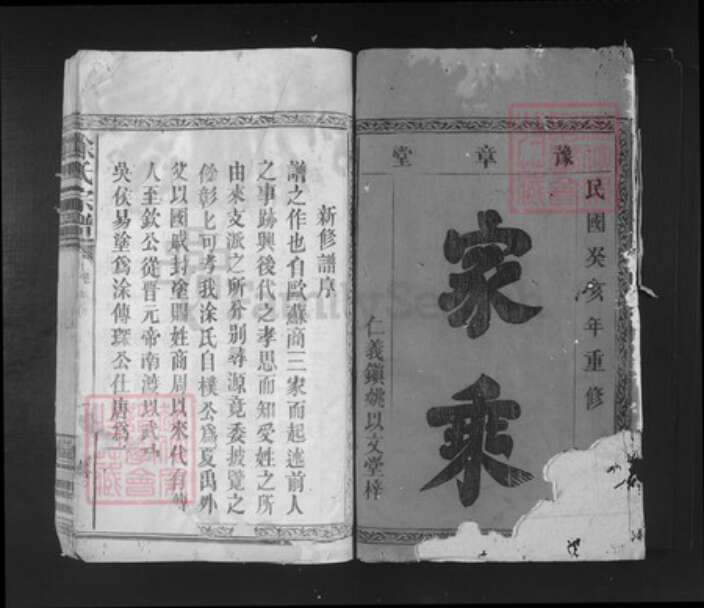 豫章堂
民國癸亥年重修
家乘
仁義鎮姚以文堂梓
涂氏宗譜
新修譜序
譜之作也自歐蘇商三家而起述前人
之事跡興後代之孝思而知受姓之所
由來支派之所分別尋源竟委披覽之
餘彰彰可考我涂氏自樸公為夏禹外
父以國戚封塗賜姓商周以來代有
人至欽公從晉元帝南渡以武
吳侯易塗為涂傳琛公仕唐為